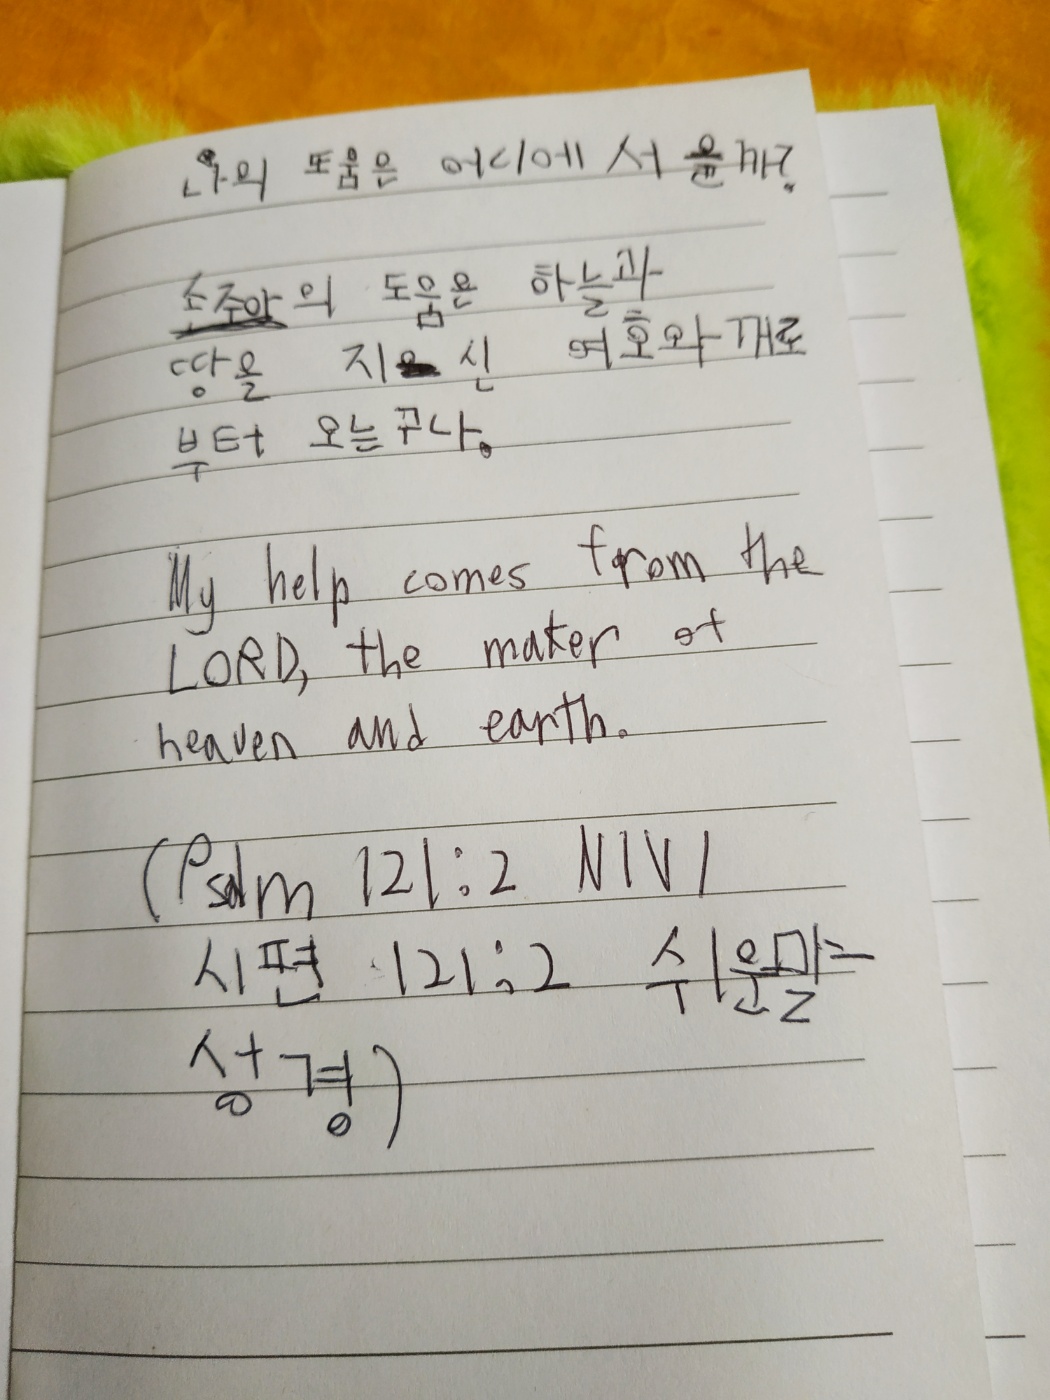 나의 도움은 어디에서 올까?
손주아의 도움은 하늘과
땅을 지으신 여호와께로
부터 오는구나.
My help comes from the
LORD, the maker of
heaven and earth.
(Psalm 121:2 NIV/
시편 121:2 쉬운말
성경)